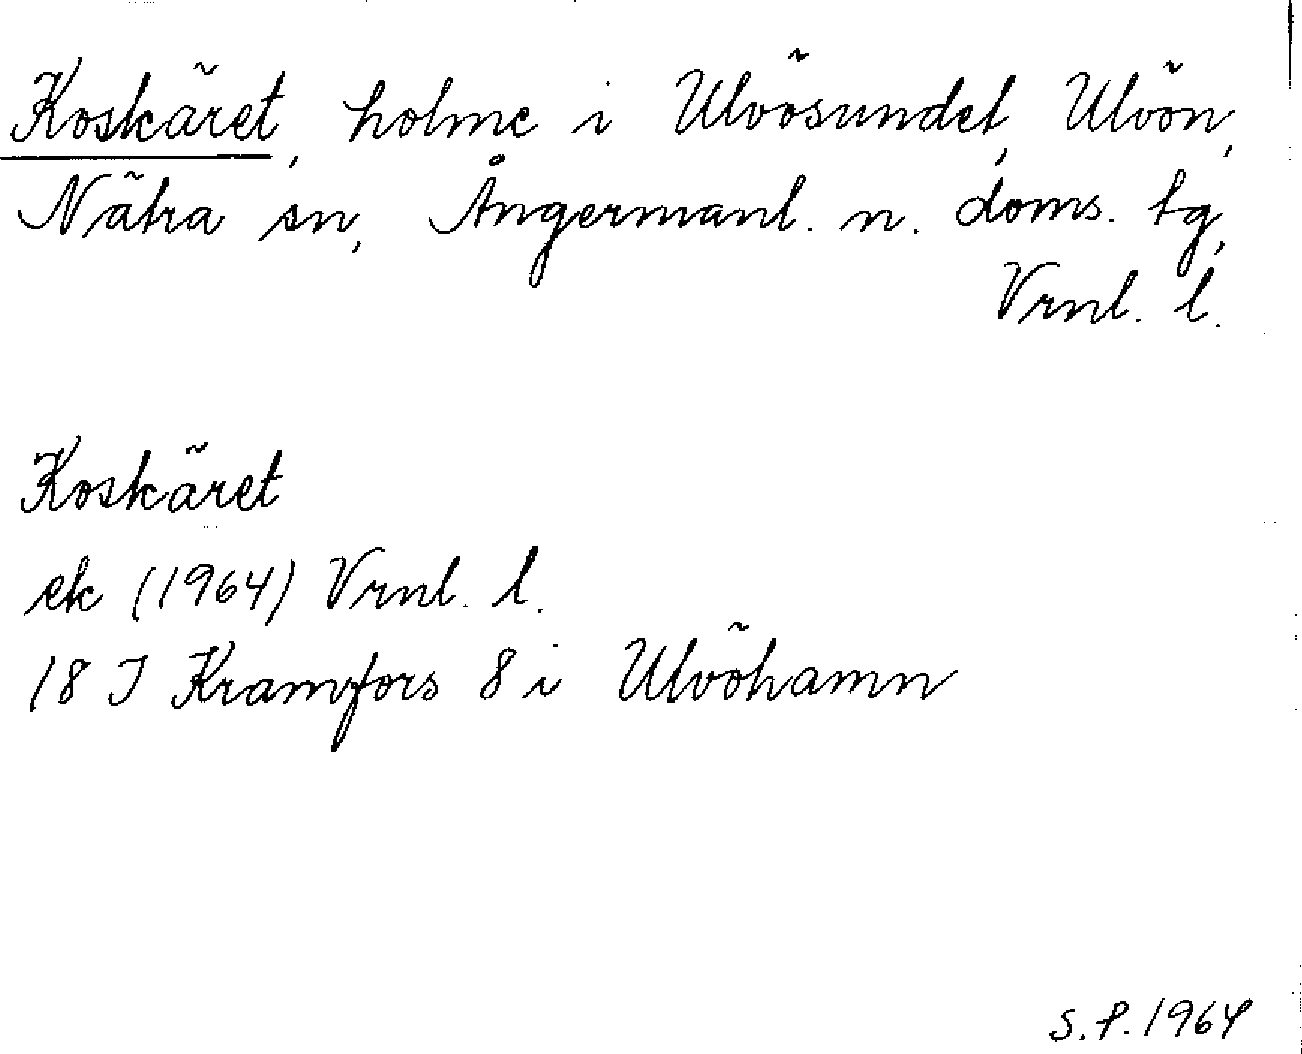 Koskäret, holme i Ulvösundet, Ulvön,
Nätra sn, Ångermanl. n. doms. tg,
Vrnl. l.
Koskäret
ek (1964) Vrnl. l.
18 I Kramfors 8 i Ulvöhamn
S.P. 1964